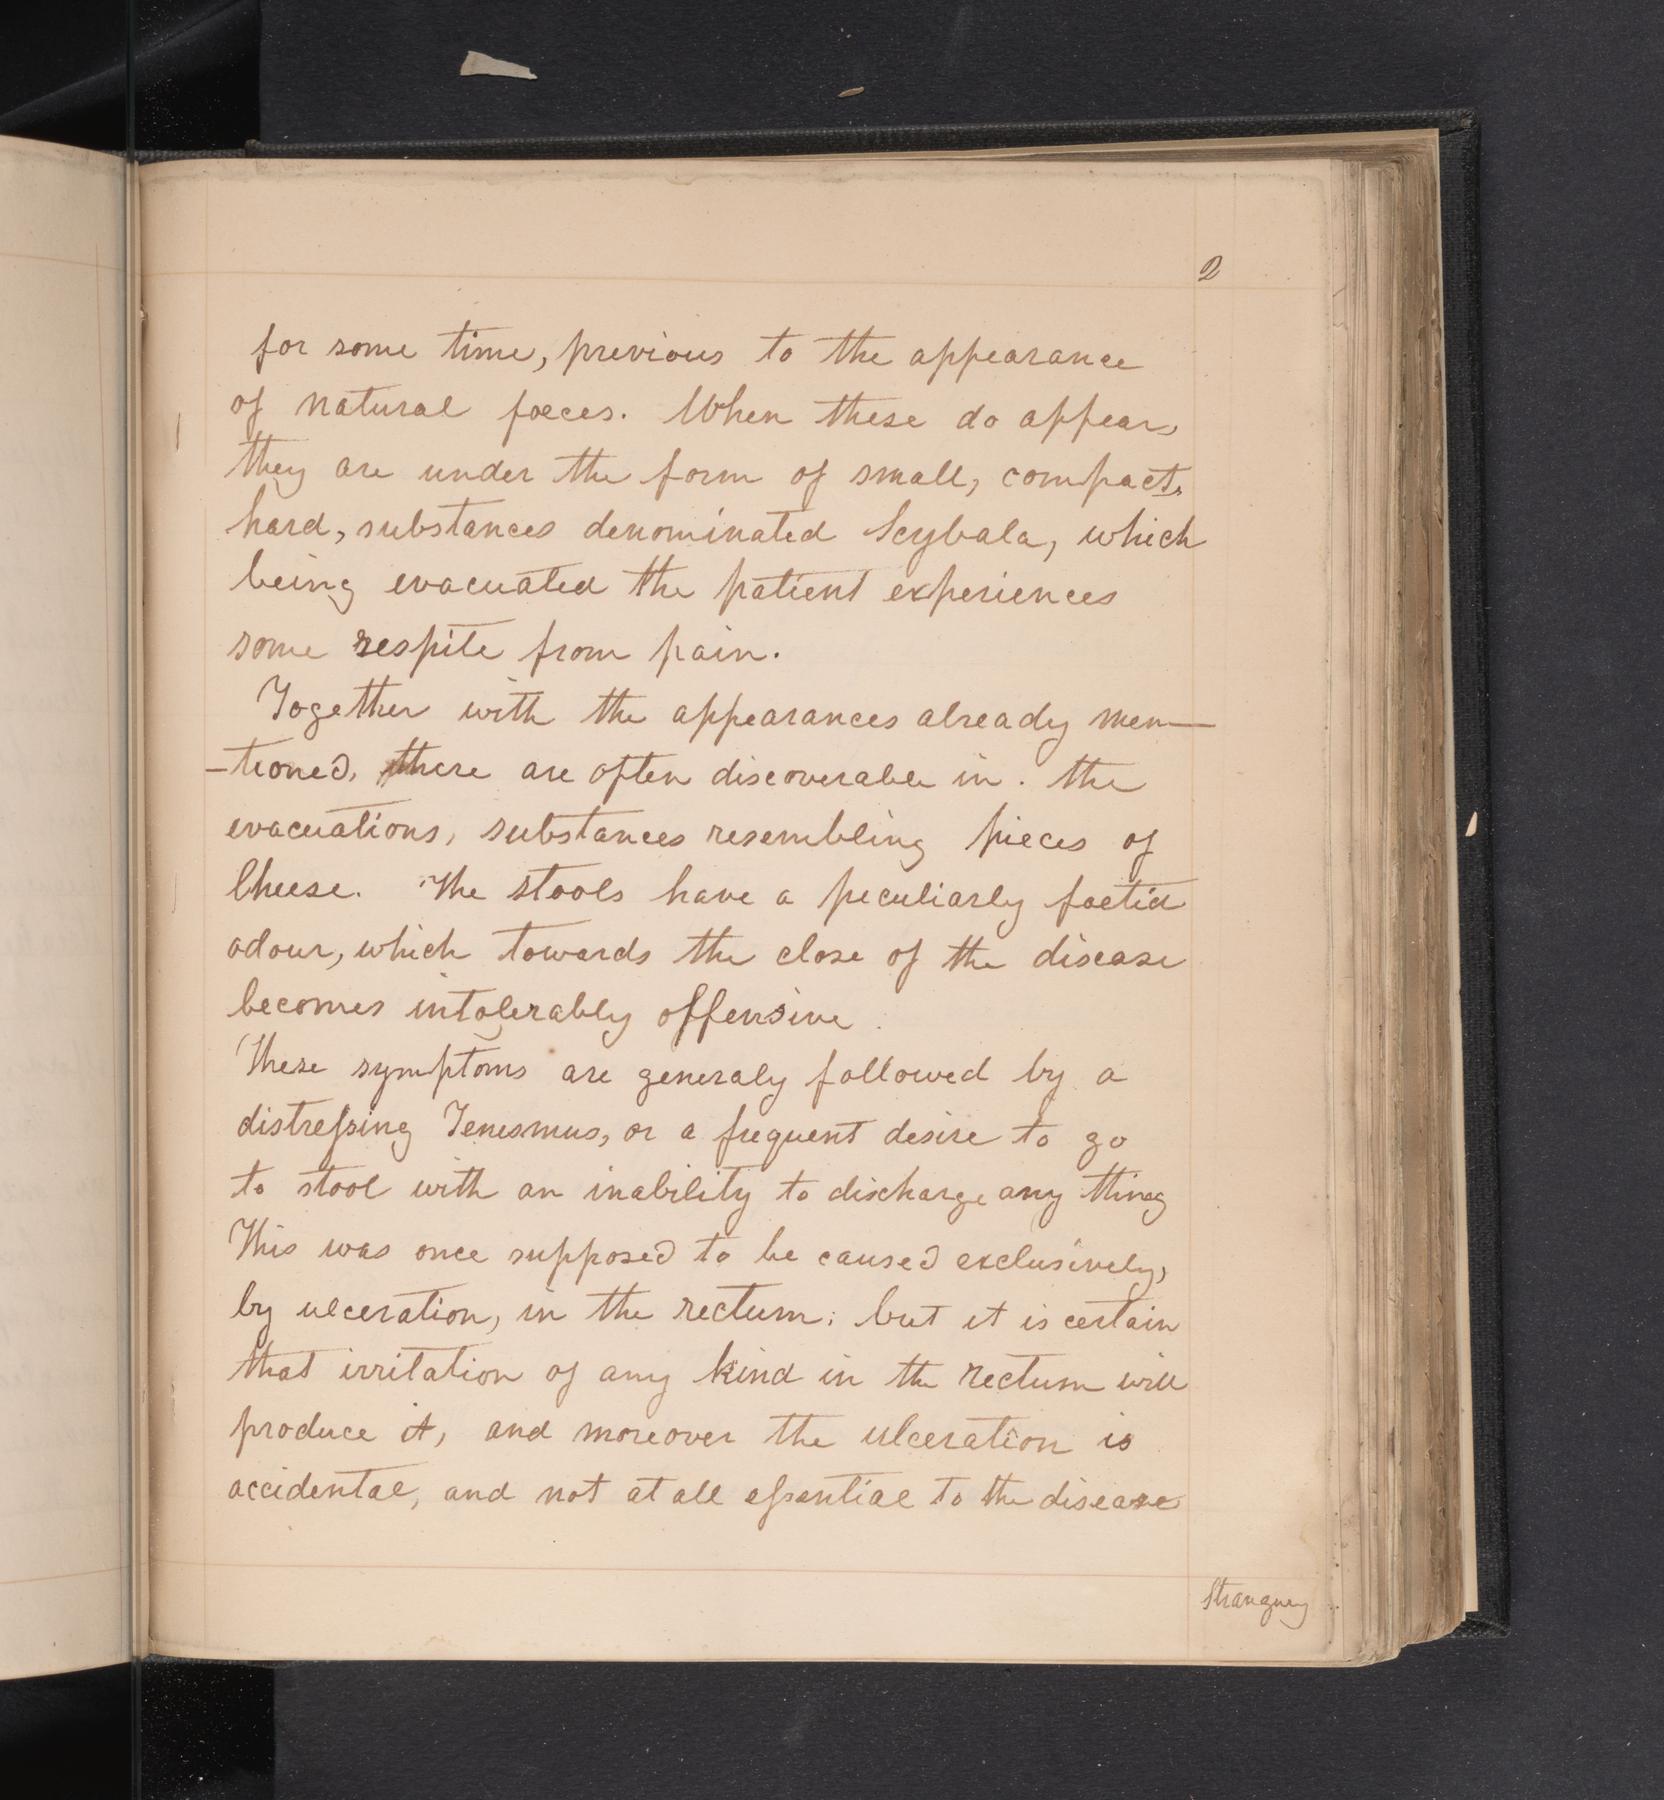 2
for some time, previous to the appearance
of natural foeces. When these do appear,
they are under the form of small, compact,
hard, substances denominated Scybala, which
being evacuated the patient experiences
some respite from pain.
Together with the appearances already men—
–tioned, there are often discoverable in. the
evacuations, substances resembling pieces of
Cheese. The stools have a peculiarly foetid
odour, which towards the close of the disease
becomes intolerably offensive.
These symptoms are generaly followed by a
distreſsing Tenesmus, or a frequent desire to go
to stool with an inability to discharge any thing
This was once supposed to be caused exclusively,
by ulceration, in the rectum; but it is certain
that irritation of any kind in the rectum will
produce it, and moreover the ulceration is
accidental, and not at all eſsential to the disease
Strangury